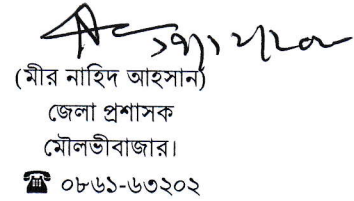 (মীর নাহিদ আহসান)
জেলা প্রশাসক
মৌলভীবাজার।
☎ ০৮৬১-৬৩২০২